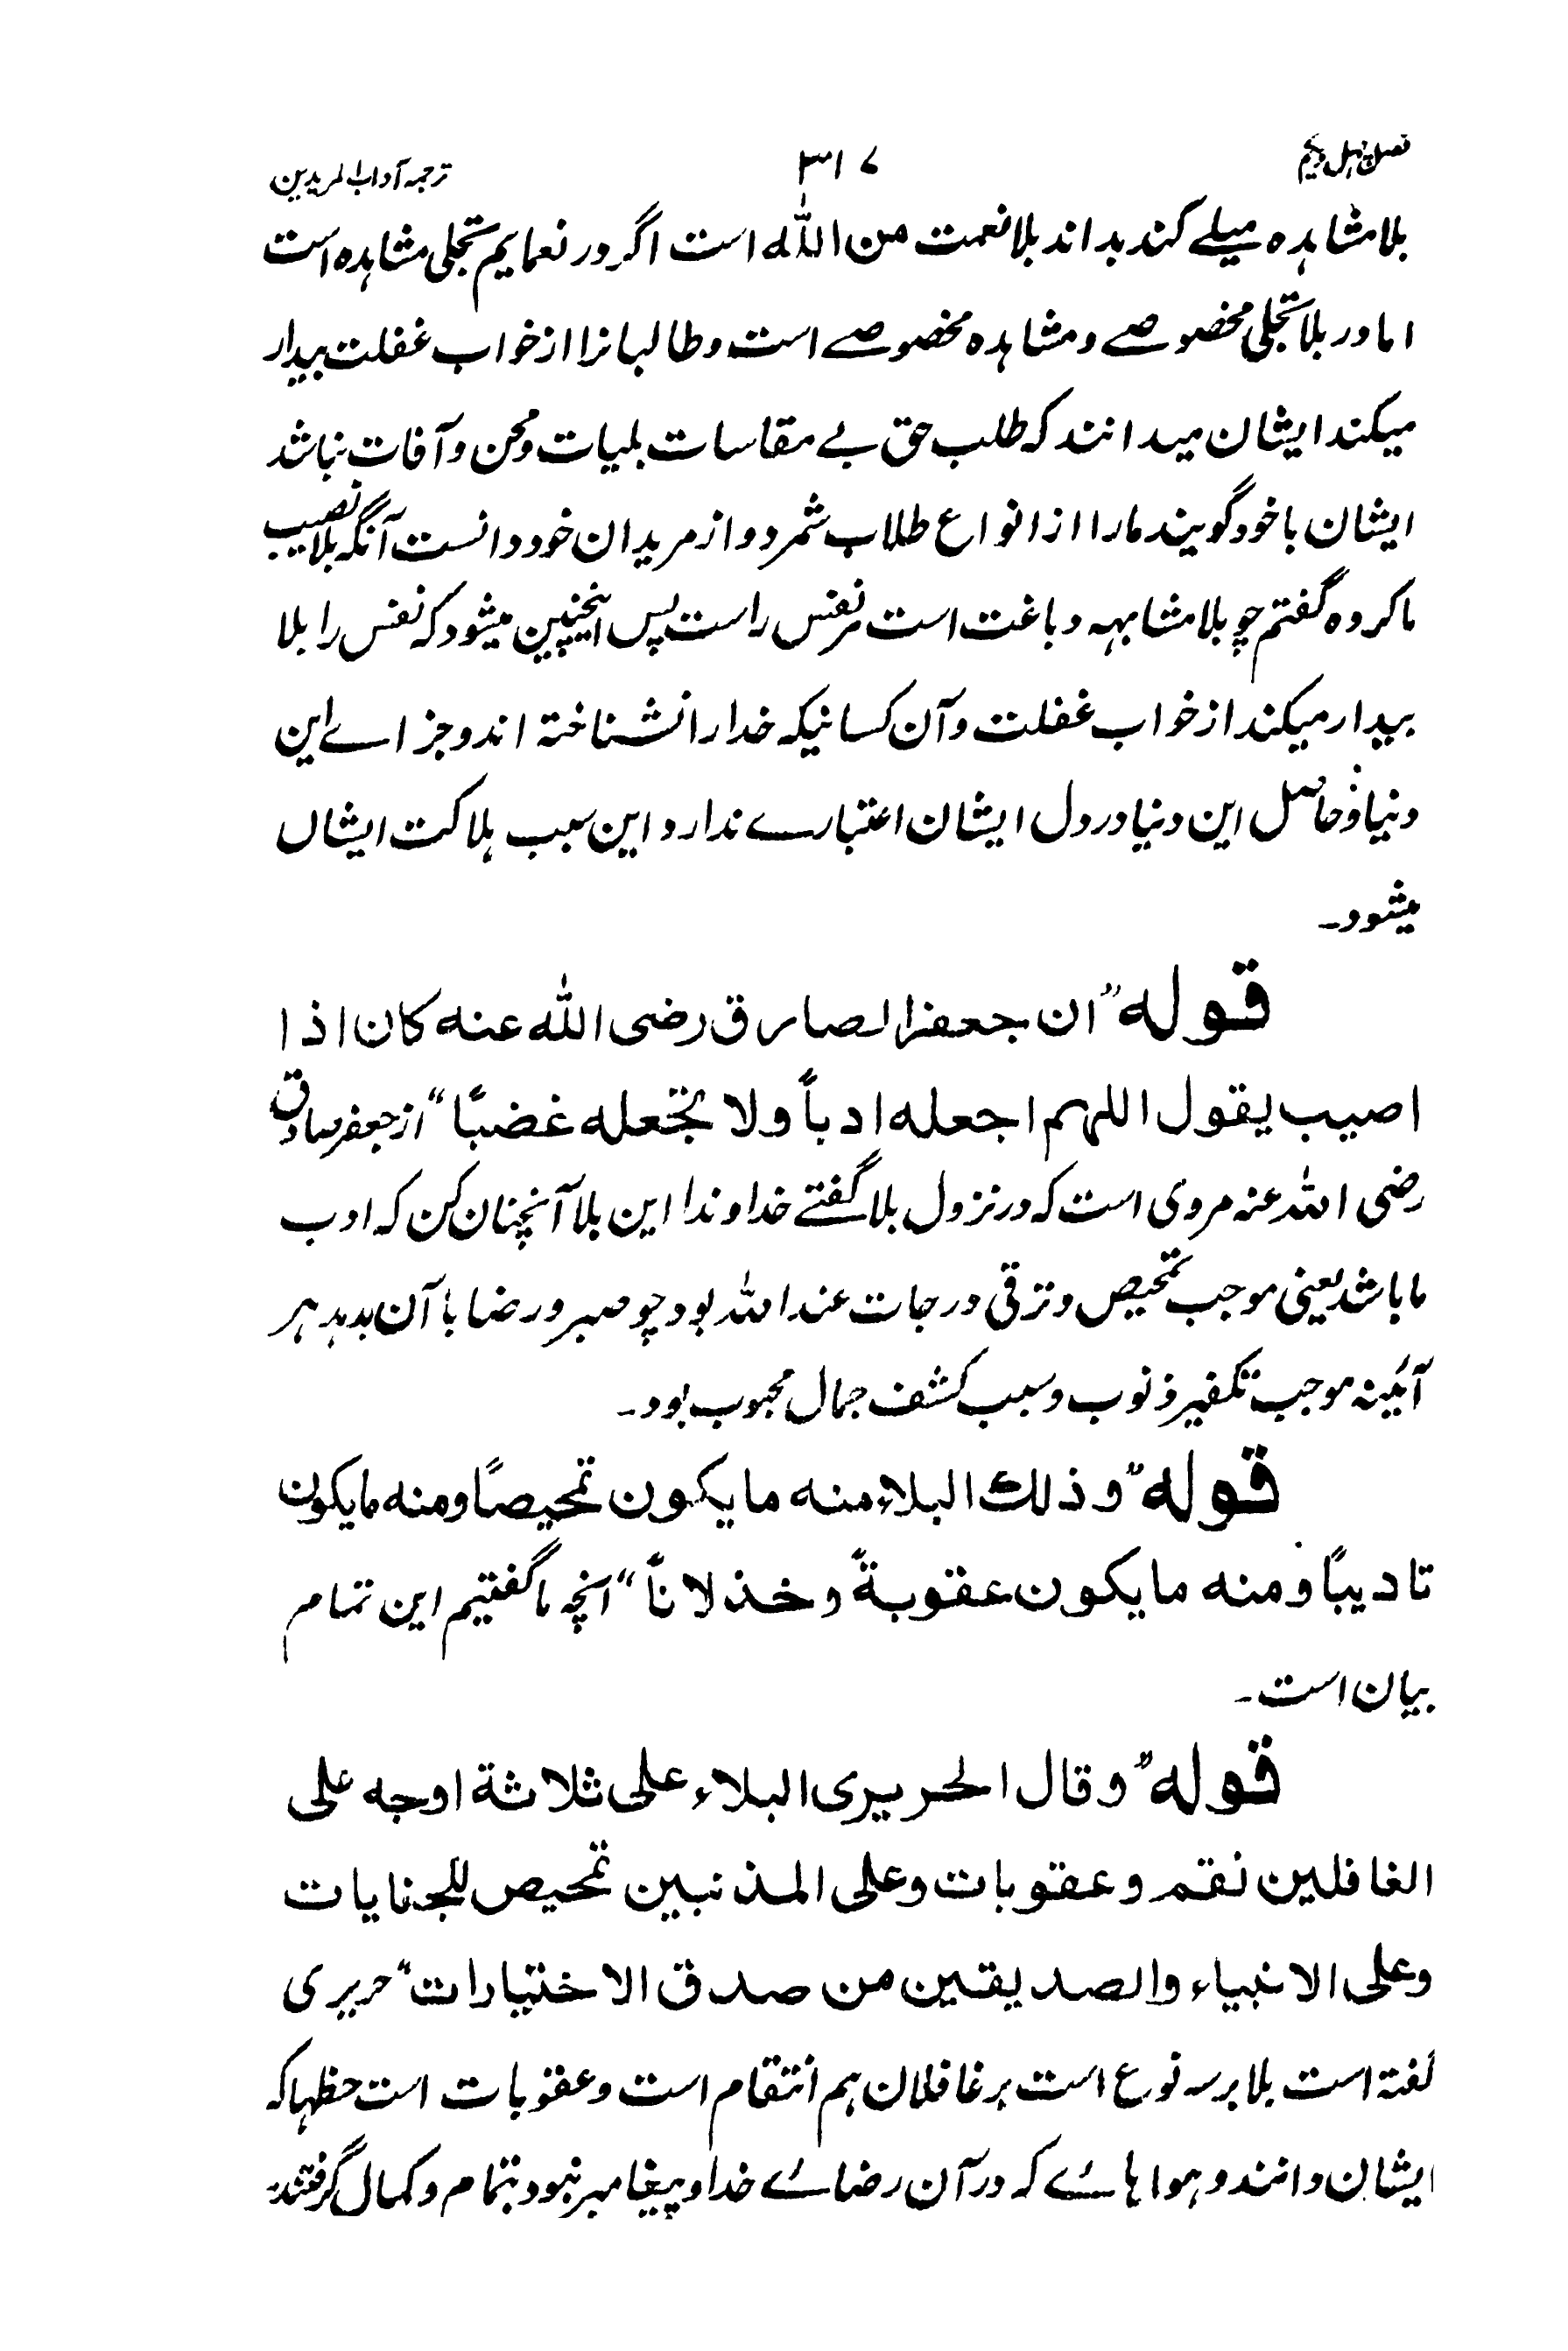 فصل چہل ویکم ۳۱۷ ترجمہ آداب المریدین
بلا مشاہدہ میلے کند بداند بلا نعمت من اللّٰہ است اگر در نعمایم تجلی مشاہدہ است
اما در بلا تجلی مخصوصے و مشاہدہ مخصوصے است و طالبانرا از خواب غفلت بیدار
میکند ایشان میدانند کہ طلب حق بے مقاسات بلیات و محن و آفات نباشد
ایشان با خود گویند مارا از انواع طلاب شمرد و از مریدان خود دانست آنگہ بلا نصیب
ما کردہ گفتم چو بلا مشابہہ دباغت است مر نفس راست پس اینچنین میشود کہ نفس را بلا
بیدار میکند از خواب غفلت و آن کسانیکہ خدا را نشناختہ اند و جز اے این
دنیا و حاصل این دنیا در دل ایشان اعتبارے ندارد این سبب ہلاکت ایشاں
میشود۔
قولہ "ان جعفر الصادق رضی اللّٰہ عنہ کان اذا
اصیب یقول اللہم اجعلہ ادباً ولا تجعلہ غضبًا" از جعفر صادق
رضی اللہ عنہ مروی است کہ در نزول بلا گفتے خداوندا این بلا آنچنان کن کہ ادب
ما باشد یعنی موجب تمحیص و ترقی درجات عند اللہ بود چو صبر و رضا با آن بدہد ہر
آئینہ موجب تکفیر ذنوب و سبب کشف جمال محبوب بود۔
قولہ "وذلك البلاء منہ ما یکون تمحیصًا ومنہ مایکون
تادیبًا ومنہ مایکون عقوبةً وخذلاناً" آنچہ ما گفتیم این تمام
بیان است۔
قولہ "وقال الحریری البلاء علی ثلاثة اوجہ علی
الغافلین نقم وعقوبات وعلی المذنبین تمحیص للجنایات
وعلی الانبیاء والصدیقین من صدق الاختیارات" حریری
گفتہ است بلا بر سہ نوع است بر غافلان ہم انتقام است و عقوبات است حظہا کہ
ایشان دانند و ہواہائے کہ در آن رضائے خدا و پیغامبر نبود بتمام و کمال گرفتند